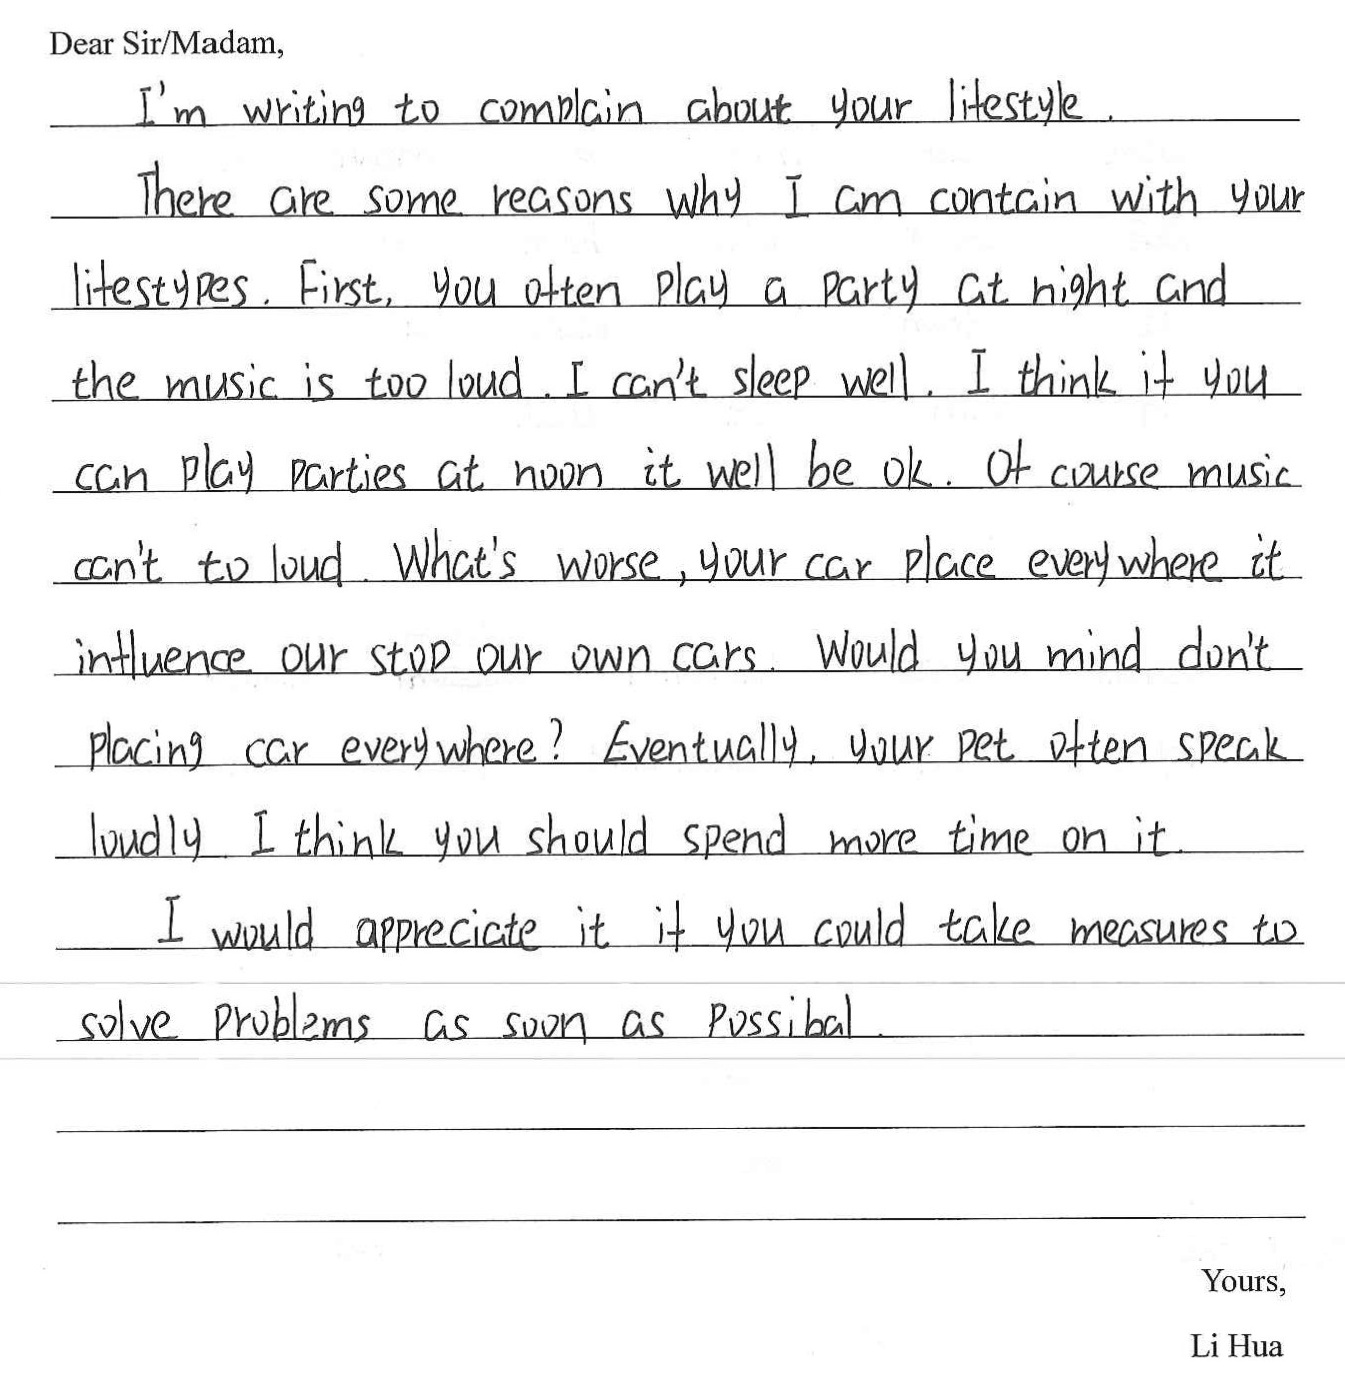 Dear Sir/Madam,
I'm writing to complain about your lifestyle.
There are some reasons why I am contain with your
lifestypes. First, you often play a party at night and
the music is too loud. I can't sleep well. I think if you
can play parties at noon it well be ok. Of course music
can't to loud. What's worse, your car place everywhere it
influence our stop our own cars. Would you mind don't
placing car everywhere? Eventually, your pet often speak
loudly. I think you should spend more time on it.
I would appreciate it if you could take measures to
solve problems as soon as possibal.
Yours,
Li Hua